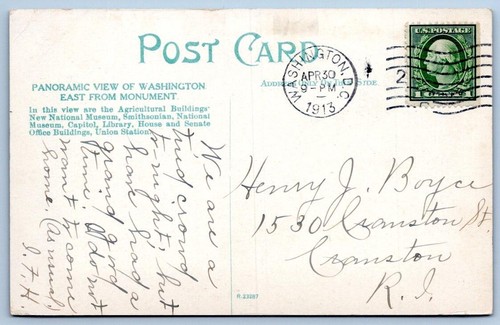 POST CARD
PANORAMIC VIEW OF WASHINGTON
EAST FROM MONUMENT
In this view are the Agricultural Buildings
New National Museum, Smithsonian, National
Museum, Capitol, Library, House and Senate
Office Buildings, Union Station.
ADDRESS ONLY ON THIS SIDE
WASHINGTON, D.C.
APR 30
9-PM
1913
2
U.S. POSTAGE
We are a
tired crowd
to night, but
have had a
grand good
time. I do not
want to come
home. (As usual)
I. F. H.
Henry J. Boyce
1530 Cranston St.
Cranston
R. I.
R-23207